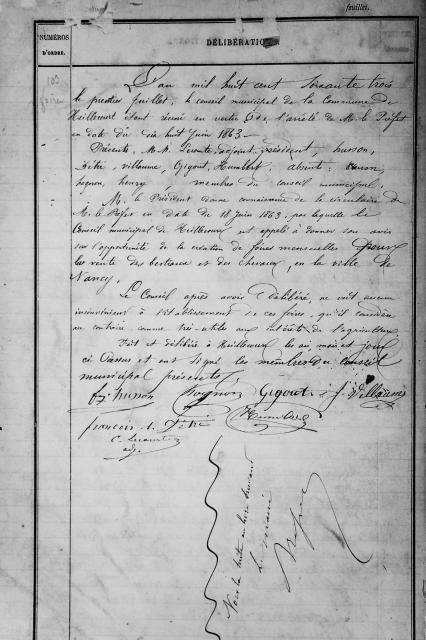 feuillet.
NUMÉROS
D'ORDRE.
DÉLIBÉRATION
103
foires
L'an mil huit cent soixante trois
le premier juillet, le conseil municipal de la Commune de
Heillecourt étant réuni en vertu de l'arrêté de M. le Préfet
en date du dix huit juin 1863.
Présents, M.M. Lecomte, adjoint, président, husson,
Détré, villaume, Gigout, humbert, absents:
hognon, henry membres du conseil municipal.
M. le Président donne connaissance de la circulaire de
M. le Préfet en date du 18 juin 1863, par laquelle le
Conseil municipal de Heillecourt est appelé à donner son avis
sur l'opportunité de la création de foires mensuelles pour
les vente des bestiaux et des chevaux, en la ville de
Nancy.
Le Conseil après avoir Délibéré, ne voit aucun
inconvénient à l'établissement de ces foires, qu'il considère
au contraire comme très-utiles aux intérêts de l'agriculture
Fait et délibéré à Heillecourt les an, mois et jour
ci Dessus et ont signé les membres du conseil
municipal présents,
husson hognon Gigout j. Villaume
françois Détré humbert
adj.
Voir la suite au livre suivant